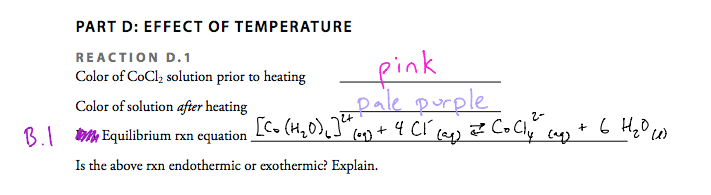 PART D: EFFECT OF TEMPERATURE
REACTION D.1
Color of CoCl₂ solution prior to heating pink
Color of solution after heating pale purple
B.1 Equilibrium rxn equation [Co(H₂O)₆]²⁺(aq) + 4 Cl⁻(aq) ⇄ CoCl₄²⁻(aq) + 6 H₂O(l)
Is the above rxn endothermic or exothermic? Explain.